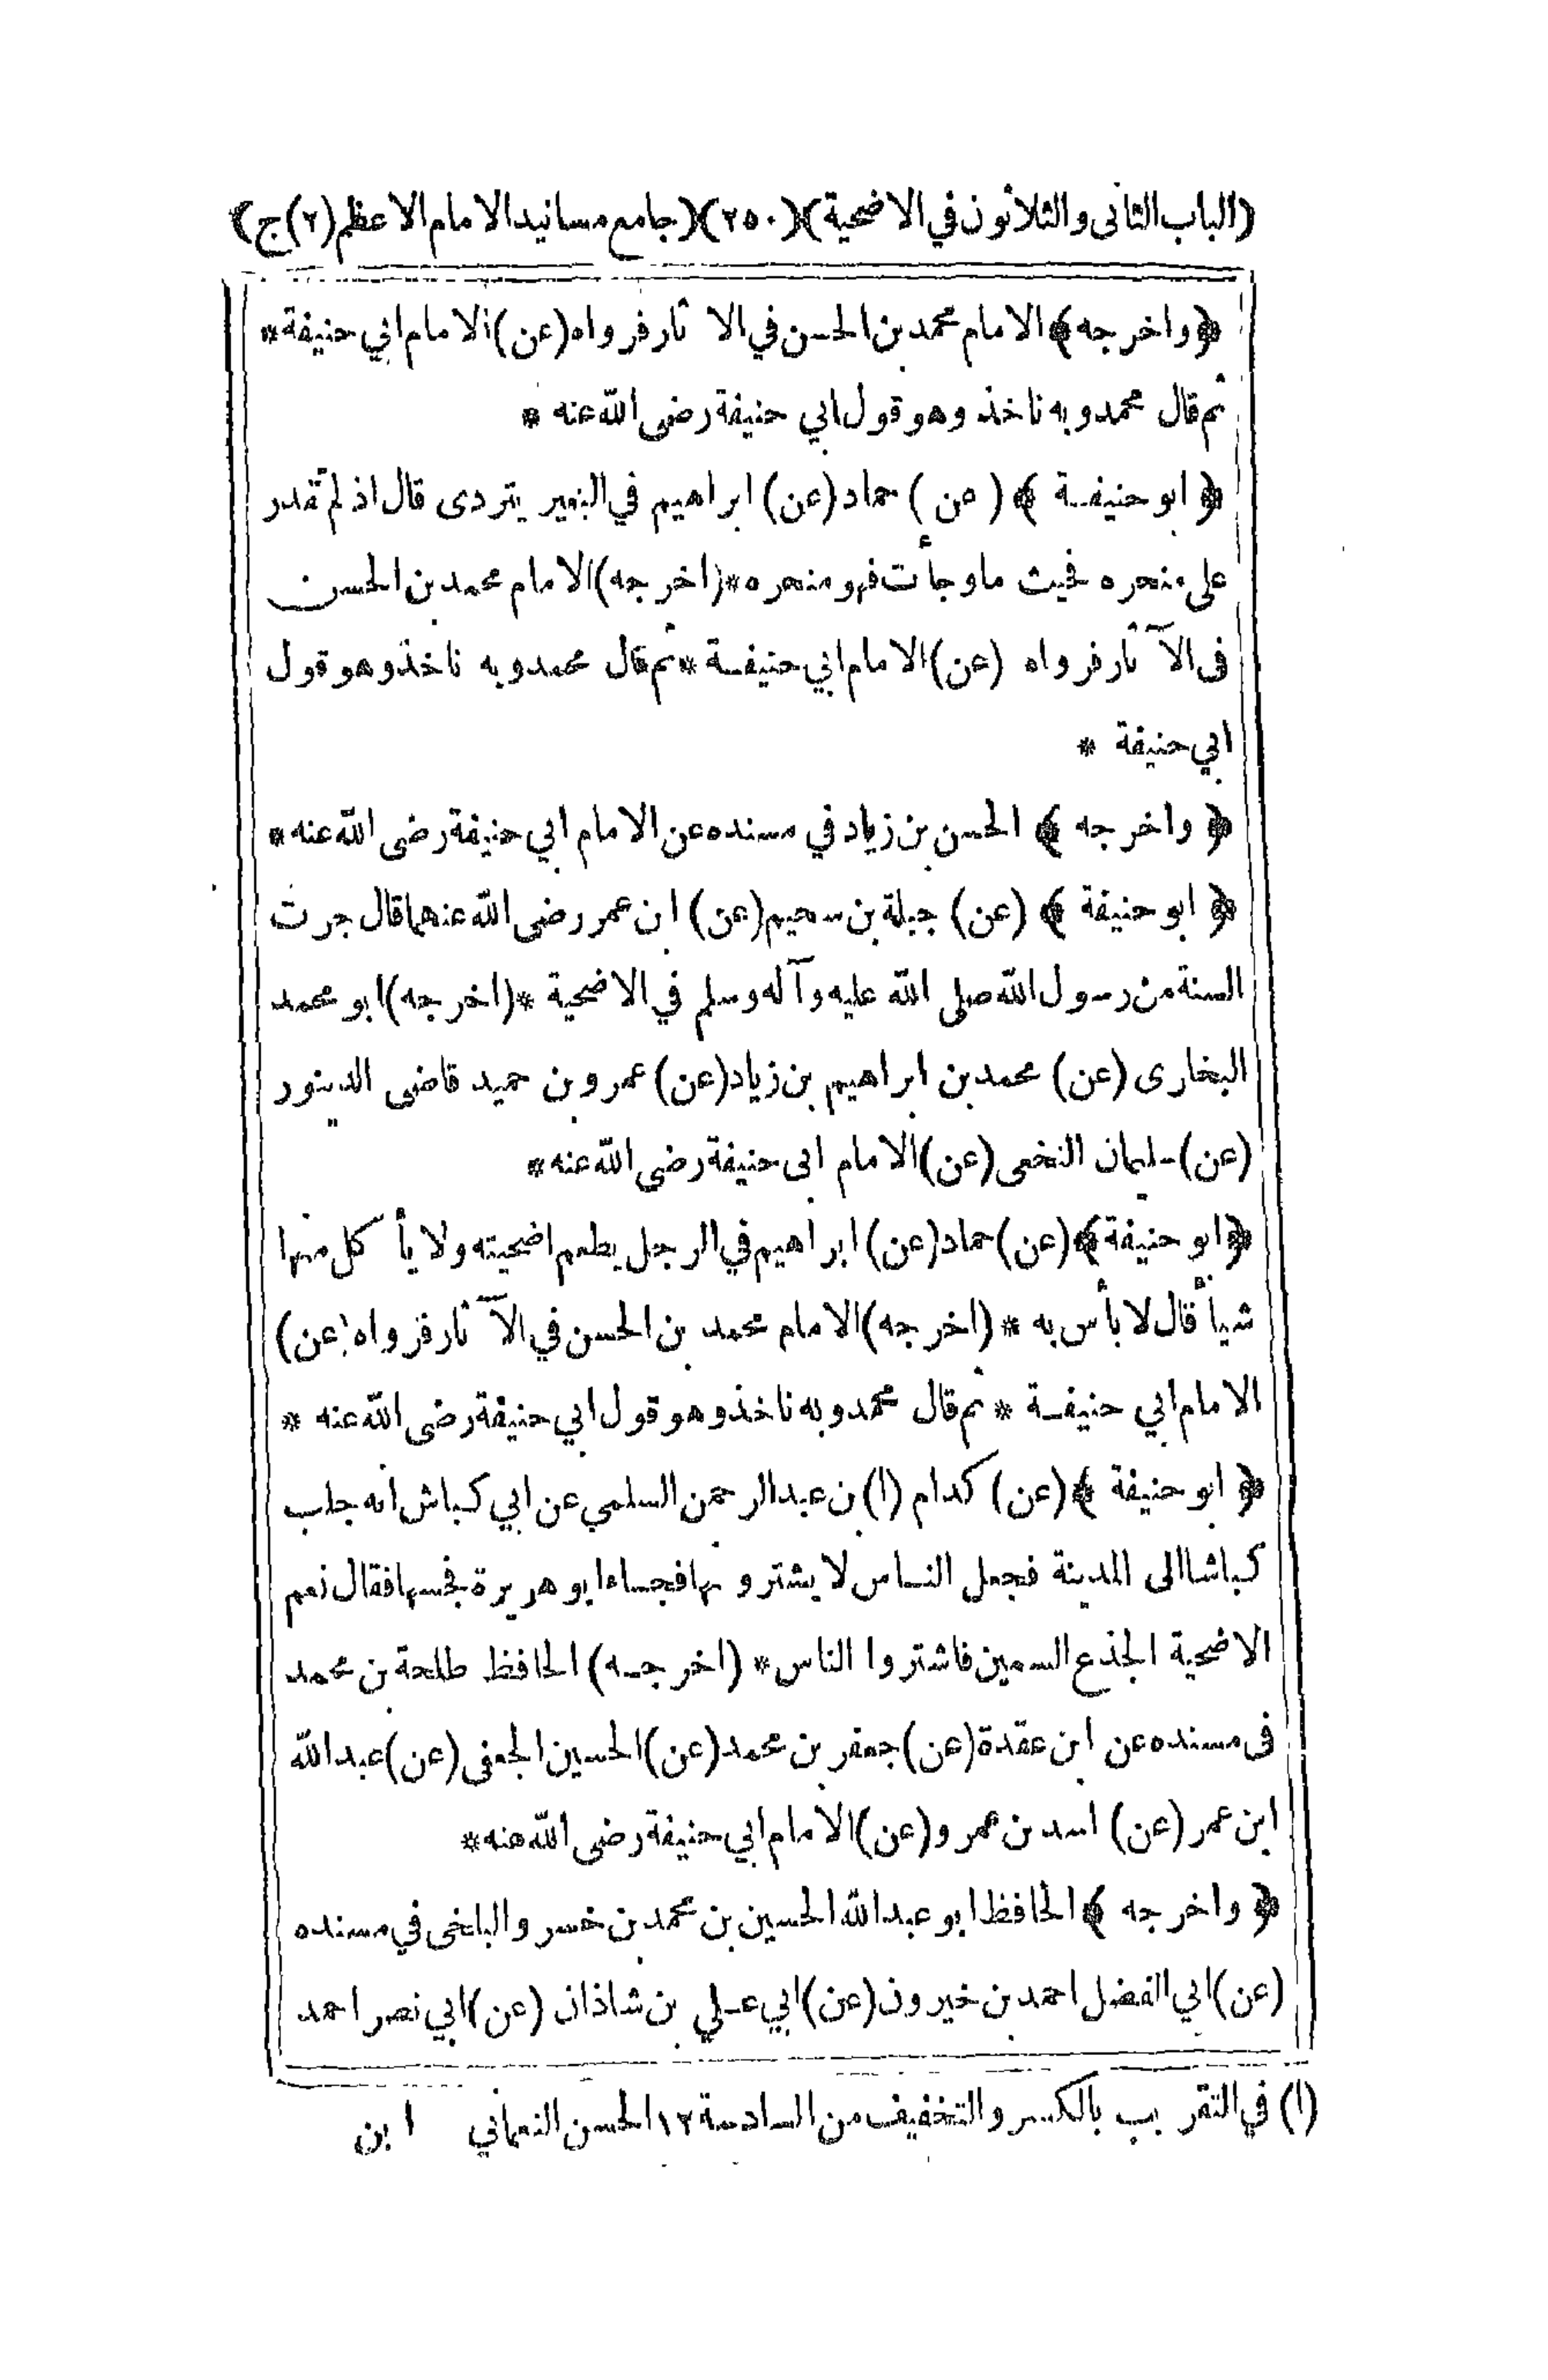 (الباب الثانى والثلاثون في الاضحية)(٢٥٠)(جامع مسانيد الامام الاعظم (٢) ج)
﴿واخرجه﴾ الامام محمد بن الحسن في الاثار فرواه (عن) الامام ابي حنيفة*
ثم قال محمد وبه ناخذ وهو قول ابي حنيفة رضى الله عنه *
﴿ ابو حنيفة ﴾ ( عن ) حماد (عن) ابراهيم في البعير يتردى قال اذ لم تقدر
على منحره فحيث ما وجأت فهو منحره *(اخرجه) الامام محمد بن الحسن
فى الآثار فرواه (عن) الامام ابي حنيفة * ثم قال محمد وبه ناخذ وهو قول
ابي حنيفة *
﴿ واخرجه ﴾ الحسن بن زياد في مسنده عن الامام ابي حنيفة رضى الله عنه *
﴿ ابو حنيفة ﴾ (عن) جبلة بن سحيم (عن) ابن عمر رضى الله عنهما قال جرت
السنة من رسول الله صلى الله عليه وآله وسلم في الاضحية *(اخرجه) ابو محمد
البخارى (عن) محمد بن ابراهيم بن زياد (عن) عمرو بن حميد قاضى الدينور
(عن) سليمان النخعى (عن) الامام ابى حنيفة رضى الله عنه *
﴿ابو حنيفة﴾ (عن) حماد (عن) ابراهيم في الرجل يطعم اضحيته ولا يأكل منها
شيأ قال لا بأس به * (اخرجه) الامام محمد بن الحسن في الآثار فرواه (عن)
الامام ابي حنيفة * ثم قال محمد وبه ناخذ وهو قول ابي حنيفة رضى الله عنه *
﴿ ابو حنيفة ﴾ (عن) كدام (١) بن عبد الرحمن السلمي عن ابي كباش انه جلب
كباشا الى المدينة فجعل الناس لا يشترونها فجاءه ابو هريرة فجسها فقال نعم
الاضحية الجذع السمين فاشتروا الناس * (اخرجه) الحافظ طلحة بن محمد
فى مسنده عن ابن عقدة (عن) جعفر بن محمد (عن) الحسين الجعفى (عن) عبد الله
ابن عمر (عن) اسد بن عمرو (عن) الامام ابي حنيفة رضى الله عنه *
﴿ واخرجه ﴾ الحافظ ابو عبد الله الحسين بن محمد بن خسرو البلخى في مسنده
(عن) ابي الفضل احمد بن خيرون (عن) ابي علي بن شاذان (عن) ابي نصر احمد
(١) في التقريب بالكسر والتخفيف من السادسة ١٢ الحسن النعماني ابن